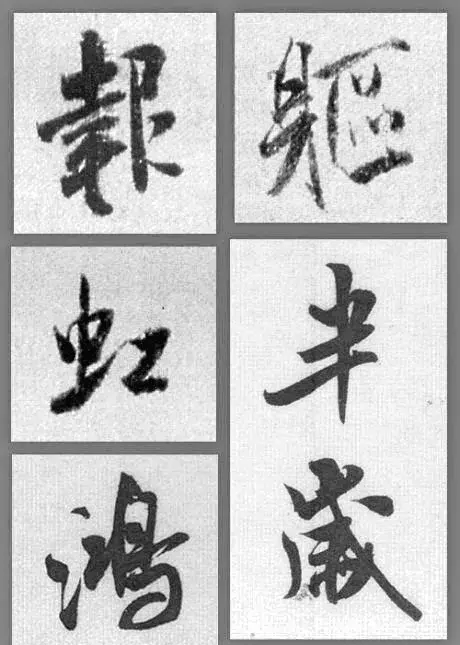 報
軀
虹
半
歲
鴻